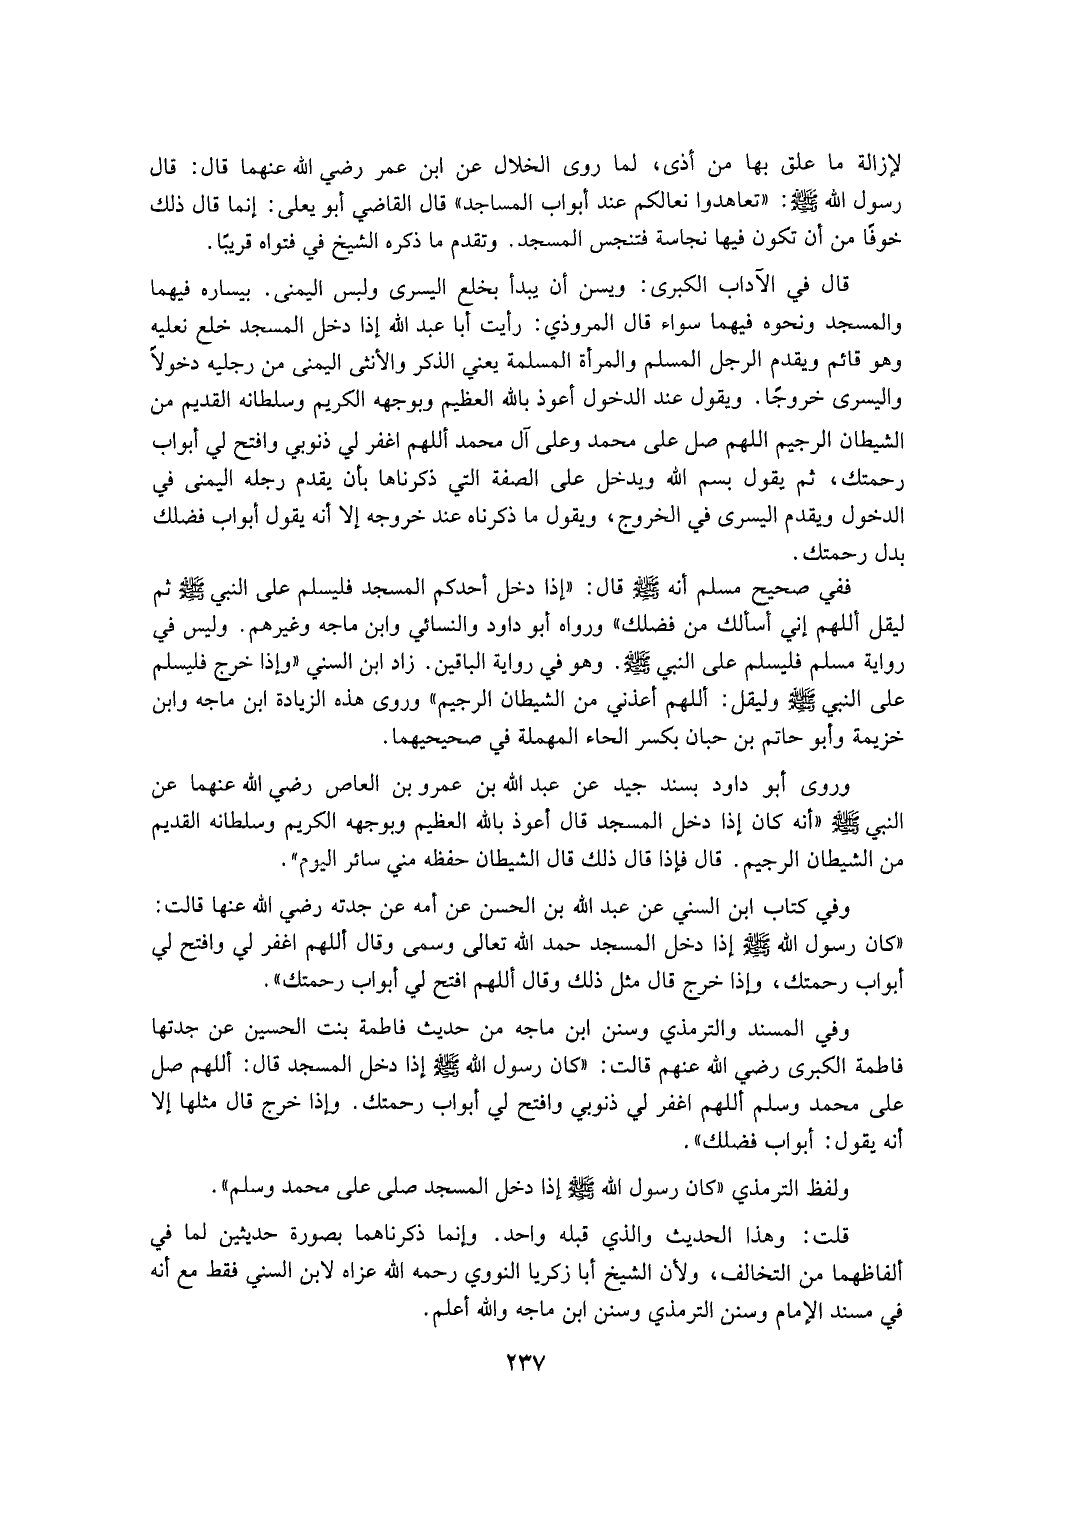 لإزالة ما علق بها من أذى، لما روى الخلال عن ابن عمر رضي الله عنهما قال: قال
رسول الله ﷺ: «تعاهدوا نعالكم عند أبواب المساجد» قال القاضي أبو يعلى: إنما قال ذلك
خوفًا من أن تكون فيها نجاسة فتنجس المسجد. وتقدم ما ذكره الشيخ في فتواه قريبًا.
قال في الآداب الكبرى: ويسن أن يبدأ بخلع اليسرى ولبس اليمنى. بيساره فيهما
والمسجد ونحوه فيهما سواء قال المروذي: رأيت أبا عبد الله إذا دخل المسجد خلع نعليه
وهو قائم ويقدم الرجل المسلم والمرأة المسلمة يعني الذكر والأنثى اليمنى من رجليه دخولاً
واليسرى خروجًا. ويقول عند الدخول أعوذ بالله العظيم وبوجهه الكريم وسلطانه القديم من
الشيطان الرجيم اللهم صل على محمد وعلى آل محمد أللهم اغفر لي ذنوبي وافتح لي أبواب
رحمتك، ثم يقول بسم الله ويدخل على الصفة التي ذكرناها بأن يقدم رجله اليمنى في
الدخول ويقدم اليسرى في الخروج، ويقول ما ذكرناه عند خروجه إلا أنه يقول أبواب فضلك
بدل رحمتك.
ففي صحيح مسلم أنه ﷺ قال: «إذا دخل أحدكم المسجد فليسلم على النبي ﷺ ثم
ليقل أللهم إني أسألك من فضلك» ورواه أبو داود والنسائي وابن ماجه وغيرهم. وليس في
رواية مسلم فليسلم على النبي ﷺ. وهو في رواية الباقين. زاد ابن السني «وإذا خرج فليسلم
على النبي ﷺ وليقل: أللهم أعذني من الشيطان الرجيم» وروى هذه الزيادة ابن ماجه وابن
خزيمة وأبو حاتم بن حبان بكسر الحاء المهملة في صحيحيهما.
وروى أبو داود بسند جيد عن عبد الله بن عمرو بن العاص رضي الله عنهما عن
النبي ﷺ «أنه كان إذا دخل المسجد قال أعوذ بالله العظيم وبوجهه الكريم وسلطانه القديم
من الشيطان الرجيم. قال فإذا قال ذلك قال الشيطان حفظه مني سائر اليوم».
وفي كتاب ابن السني عن عبد الله بن الحسن عن أمه عن جدته رضي الله عنها قالت:
«كان رسول الله ﷺ إذا دخل المسجد حمد الله تعالى وسمى وقال أللهم اغفر لي وافتح لي
أبواب رحمتك، وإذا خرج قال مثل ذلك وقال أللهم افتح لي أبواب رحمتك».
وفي المسند والترمذي وسنن ابن ماجه من حديث فاطمة بنت الحسين عن جدتها
فاطمة الكبرى رضي الله عنهم قالت: «كان رسول الله ﷺ إذا دخل المسجد قال: أللهم صل
على محمد وسلم أللهم اغفر لي ذنوبي وافتح لي أبواب رحمتك. وإذا خرج قال مثلها إلا
أنه يقول: أبواب فضلك».
ولفظ الترمذي «كان رسول الله ﷺ إذا دخل المسجد صلى على محمد وسلم».
قلت: وهذا الحديث والذي قبله واحد. وإنما ذكرناهما بصورة حديثين لما في
ألفاظهما من التخالف، ولأن الشيخ أبا زكريا النووي رحمه الله عزاه لابن السني فقط مع أنه
في مسند الإمام وسنن الترمذي وسنن ابن ماجه والله أعلم.
٢٣٧